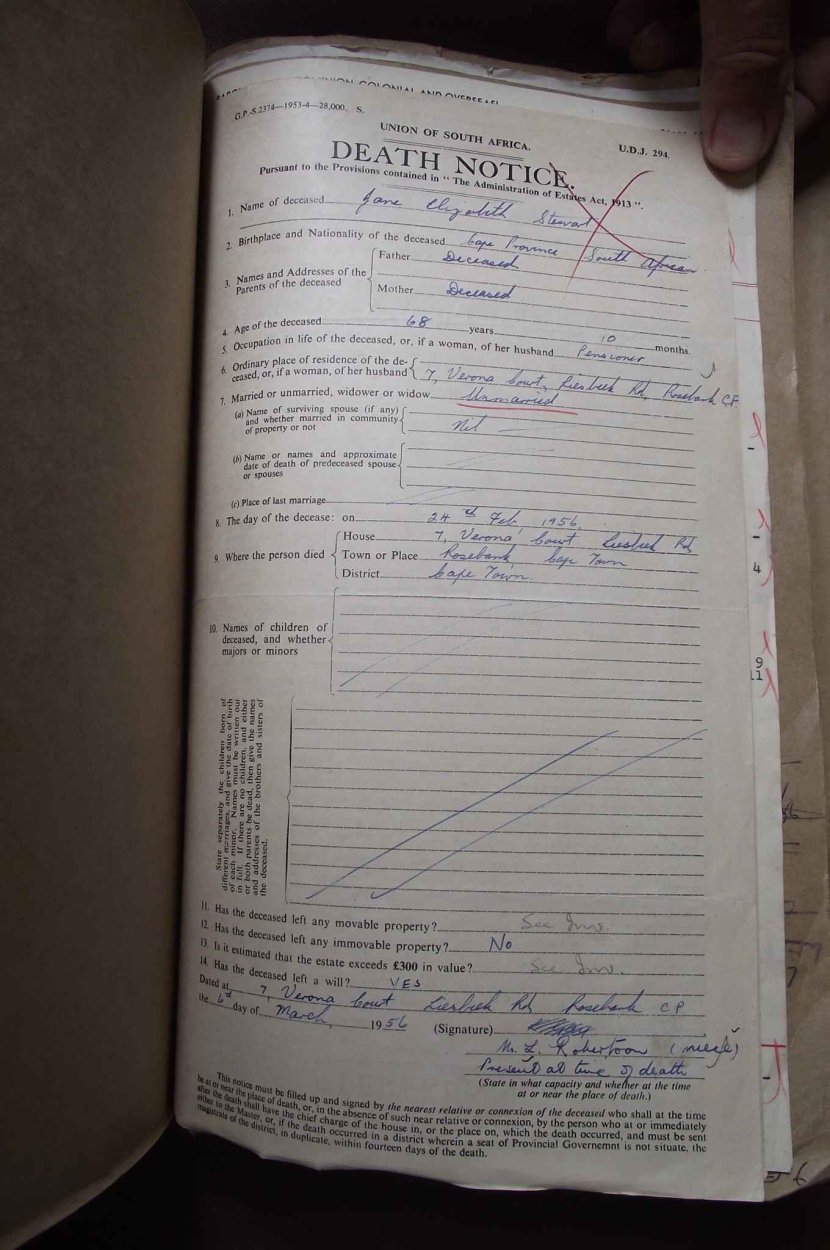 UNION COLONIAL AND OVERSEAS
G.P.-S.2374—1953-4—28,000. S.
UNION OF SOUTH AFRICA.
U.D.J. 294.
DEATH NOTICE.
Pursuant to the Provisions contained in "The Administration of Estates Act, 1913".
1. Name of deceased Jane Elizabeth Stewart
2. Birthplace and Nationality of the deceased Cape Province South African
3. Names and Addresses of the Parents of the deceased
Father Deceased
Mother Deceased
4. Age of the deceased 68 years 10 months.
5. Occupation in life of the deceased, or, if a woman, of her husband Pensioner
6. Ordinary place of residence of the de-
ceased, or, if a woman, of her husband 7, Verona Court, Liesbeek Rd, Rosebank C.P.
7. Married or unmarried, widower or widow Unmarried
(a) Name of surviving spouse (if any)
and whether married in community
of property or not
Nil
(b) Name or names and approximate
date of death of predeceased spouse
or spouses
(c) Place of last marriage
8. The day of the decease: on 24th Feb, 1956.
9. Where the person died
House 7, Verona Court Liesbeek Rd
Town or Place Rosebank, Cape Town
District Cape Town.
10. Names of children of
deceased, and whether
majors or minors
State separately the children born of
different marriages, and give the date of birth
of each minor. Names must be written out
in full. If there are no children, and either
or both parents be dead, then give the names
and addresses of the brothers and sisters of
the deceased.
4
9
11
11. Has the deceased left any movable property? See Inv.
12. Has the deceased left any immovable property? No
13. Is it estimated that the estate exceeds £300 in value? See Inv.
14. Has the deceased left a will? YES
Dated at 7, Verona Court Liesbeek Rd Rosebank CP
the 6th day of March, 1956 (Signature)
L. Robertson (niece)
Present at time of death
(State in what capacity and whether at the time
at or near the place of death.)
This notice must be filled up and signed by the nearest relative or connexion of the deceased who shall at the time
be at or near the place of death, or, in the absence of such near relative or connexion, by the person who at or immediately
after the death shall have the chief charge of the house in, or the place on, which the death occurred, and must be sent
either to the Master, or, if the death occurred in a district wherein a seat of Provincial Governemnt is not situate, the
magistrate of the district, in duplicate, within fourteen days of the death.